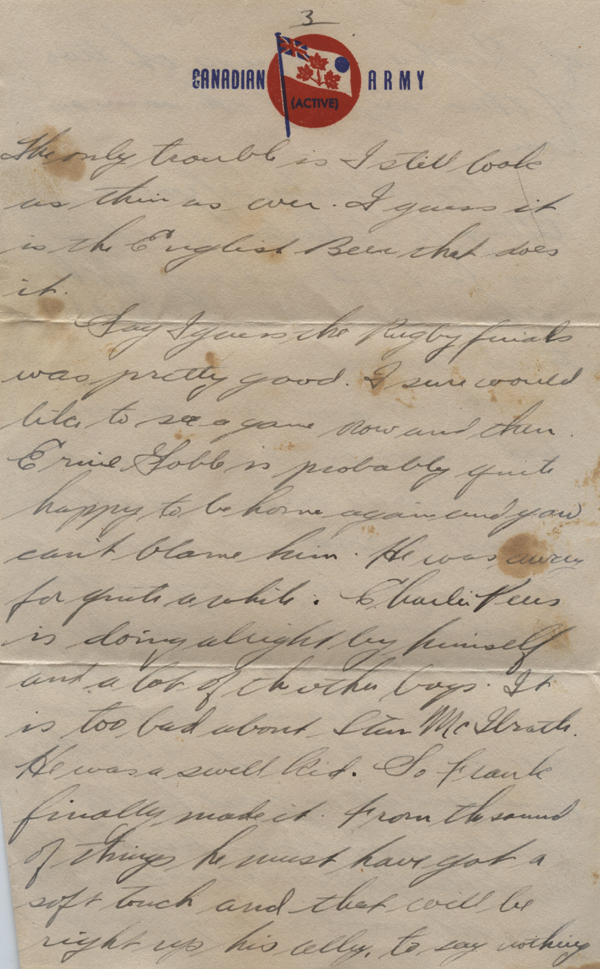 3
CANADIAN ARMY
(ACTIVE)
The only trouble is I still look
as thin as ever. I guess it
is the English Beer that does
it.
Say I guess the Rugby finals
was pretty good. I sure would
like to see a game now and then.
Ernie is probably quite
happy to be home again and you
can't blame him. He was away
for quite a while. Charlie
is doing alright by himself
and a lot of the other boys. It
is too bad about Stan McIlrath.
He was a swell kid. So Frank
finally made it. From the sound
of things he must have got a
soft touch and that will be
right up his alley, to say nothing